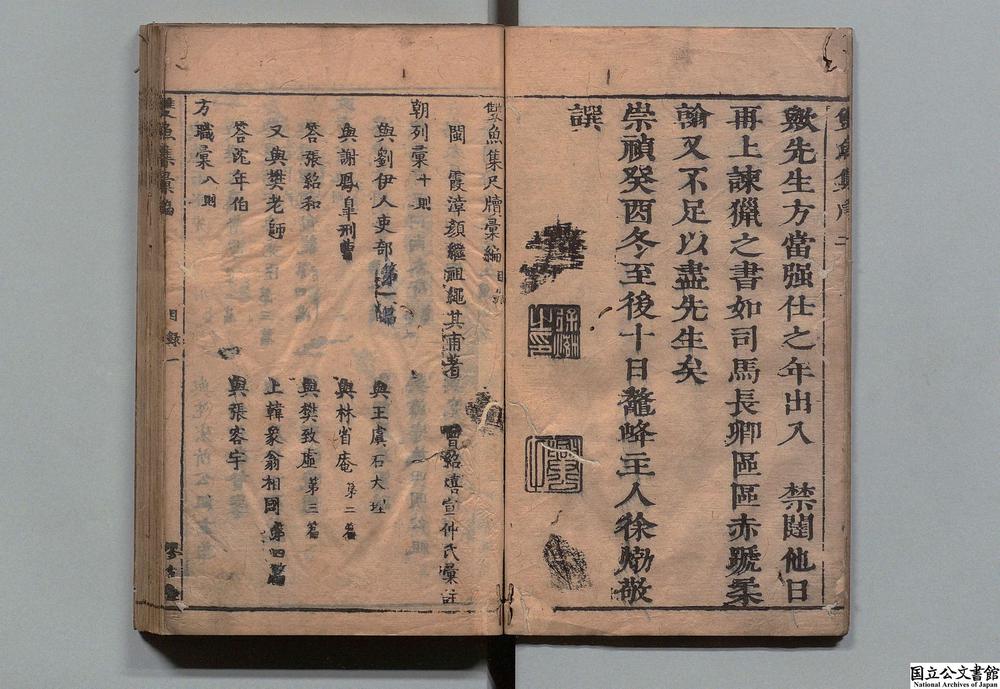 歟先生方當强仕之年出入　禁闥他日
再上諫獵之書如司馬長卿區區赤蹏柔
翰又不足以盡先生矣
崇禎癸酉冬至後十日鼇峰主人徐𤊹敬
譔
雙魚集尺牘彙編目錄
閩　霞漳顏繼祖繩其甫著　曾紹禧宣仲氏彙註
朝列彙十則
與劉伊人吏部第一篇　與王虞石大理
與謝鳳皐刑曹　與林省庵第二篇
答張紹和　與樊致虛第三篇
又與樊老師　上韓象翁相國第四篇
答沈年伯　與張客宇
方職彙八則
雙魚集彙編　目錄一
国立公文書館
National Archives of Japan